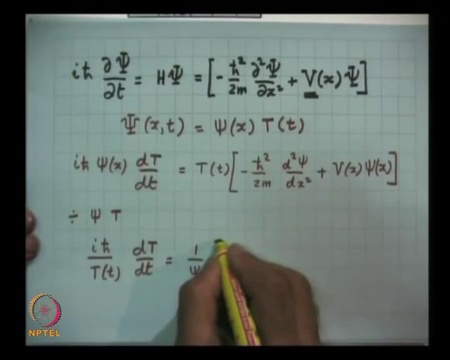 iħ ∂Ψ/∂t = HΨ = [-ħ²/2m ∂²Ψ/∂x² + V(x)Ψ]
Ψ(x,t) = ψ(x) T(t)
iħ ψ(x) dT/dt = T(t)[-ħ²/2m d²ψ/dx² + V(x)ψ(x)]
÷ ψ T
iħ/T(t) dT/dt = 1/ψ
NPTEL